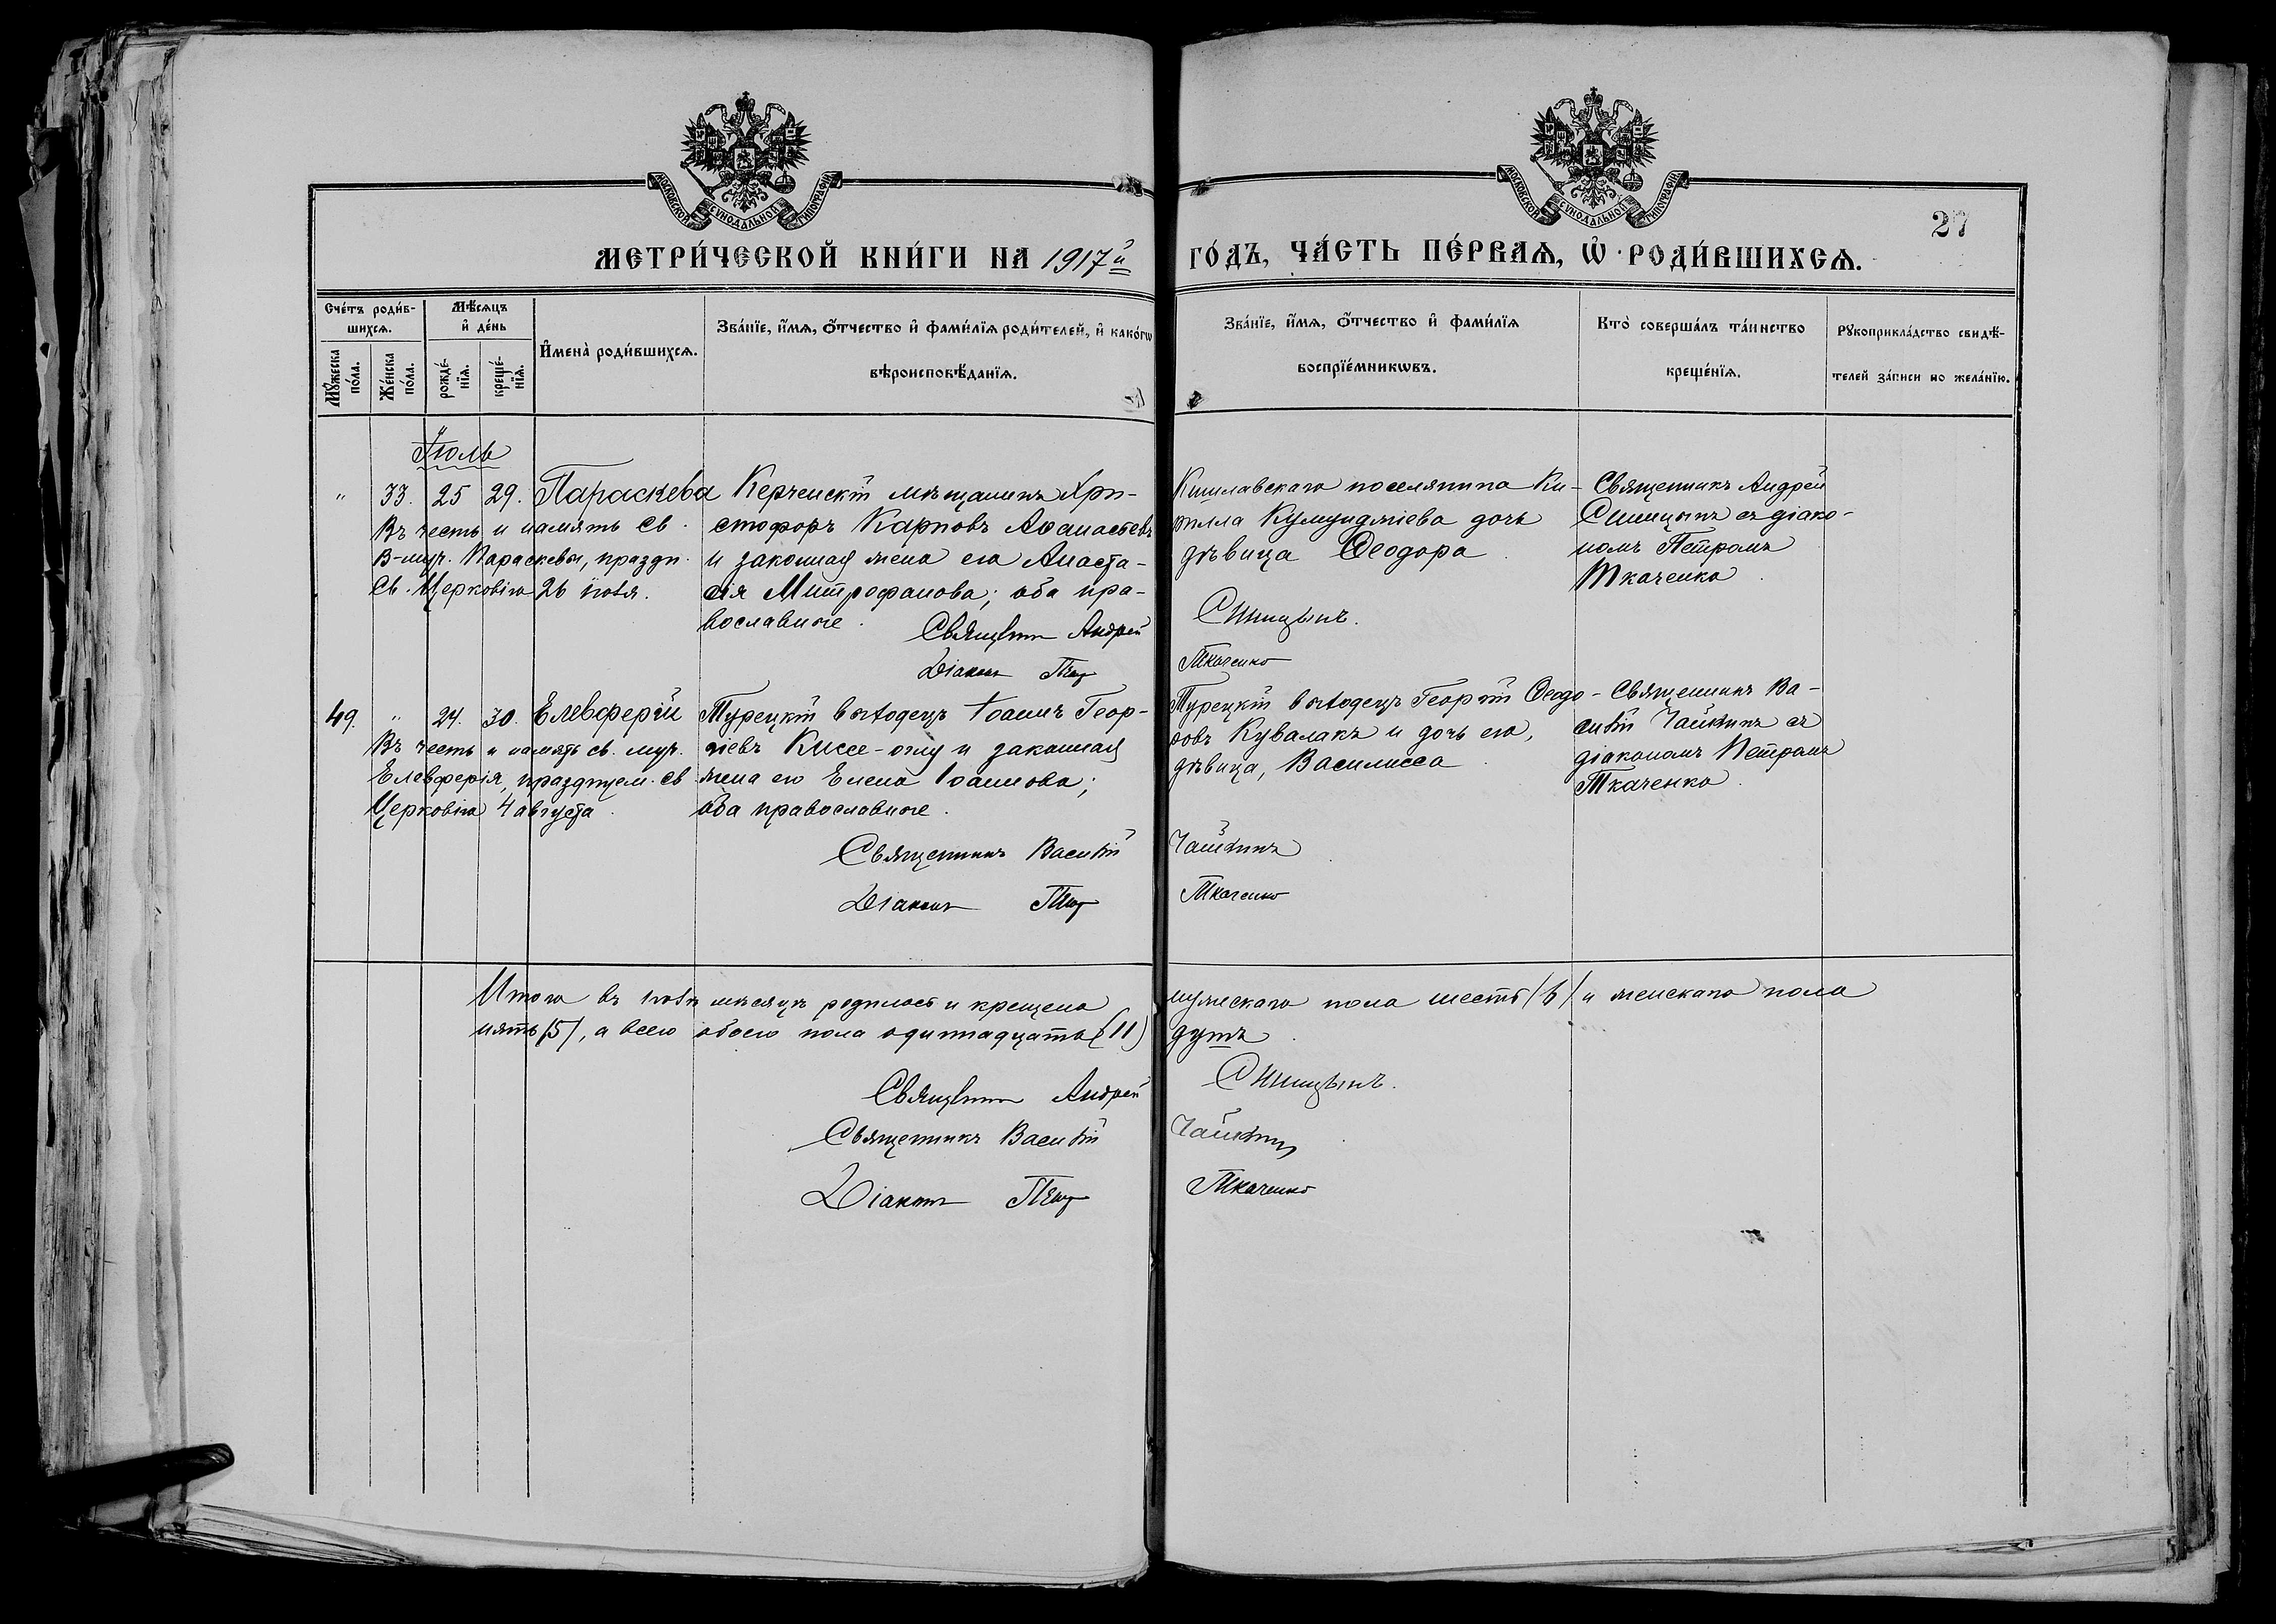 МОСКОВСКОЙ СѴНОДАЛЬНОЙ ТИПОГРАФІИ
МОСКОВСКОЙ СѴНОДАЛЬНОЙ ТИПОГРАФІИ
27
МЕТРИ́ЧЕСКОЙ КНИ́ГИ НА 1917й
ГО́ДЪ, ЧА́СТЬ ПЕ́РВАѦ, Ѡ҆ РОДИ́ВШИХСѦ.
Сче́тъ роди́в-
шихсѧ.
Мꙋ́жеска по́ла.
Же́нска по́ла.
Мѣ́сѧцъ
и҆ де́нь
рожде́-нїѧ.
креще́-нїѧ.
И҆мена̀ роди́вшихсѧ.
Зва́нїе, и҆́мѧ, ѻ҆́тчество и҆ фами́лїѧ роди́телей, и҆ како́гѡ
вѣроисповѣ́данїѧ.
Зва́нїе, и҆́мѧ, ѻ҆́тчество и҆ фами́лїѧ
воспрїе́мникѡвъ.
Кто̀ соверша́лъ та́инство
креще́нїѧ.
Рꙋкоприкла́дство свидѣ́-
телей за́писи по жела́нїю.
Іюль
" 33. 25 29. Параскева
Въ честь и память Св.
В-муч. Параскевы, праздн.
Св. Церковію 26 іюля.
Керченскій мѣщанинъ Хри-
стофоръ Карповъ Аѳанасьевъ
и законная жена его Анаста-
сія Митрофанова; оба пра-
вославные.
Кишлавскаго поселянина Ки-
рилла Кумунджіева дочь
дѣвица Ѳеодора
Священникъ Андрей
Синицынъ съ діако-
номъ Петромъ
Ткаченко.
Священникъ Андрей Синицынъ.
Діаконъ Петр Ткаченко
49. " 24. 30. Елевферій
Въ честь и память св. муч.
Елевферія, празднуем. Св
Церковію 4 августа.
Турецкій выходецъ Іоаннъ Геор-
гіевъ Киссе-оглу и законная
жена его Елена Іоаннова;
оба православные.
Турецкій выходецъ Георгій Ѳеодо-
ровъ Кувалакъ и дочь его,
дѣвица, Василисса
Священникъ Ва-
силій Чайкинъ съ
діакономъ Петромъ
Ткаченко.
Священникъ Василій Чайкинъ
Діаконъ Петр Ткаченко
Итого въ іюлѣ мѣсяцѣ родилось и крещено мужескаго пола шесть (6) и женскаго пола
пять (5), а всего обоего пола одиннадцать (11) душъ.
Священникъ Андрей Синицынъ.
Священникъ Василій Чайкинъ
Діаконъ Петр Ткаченко